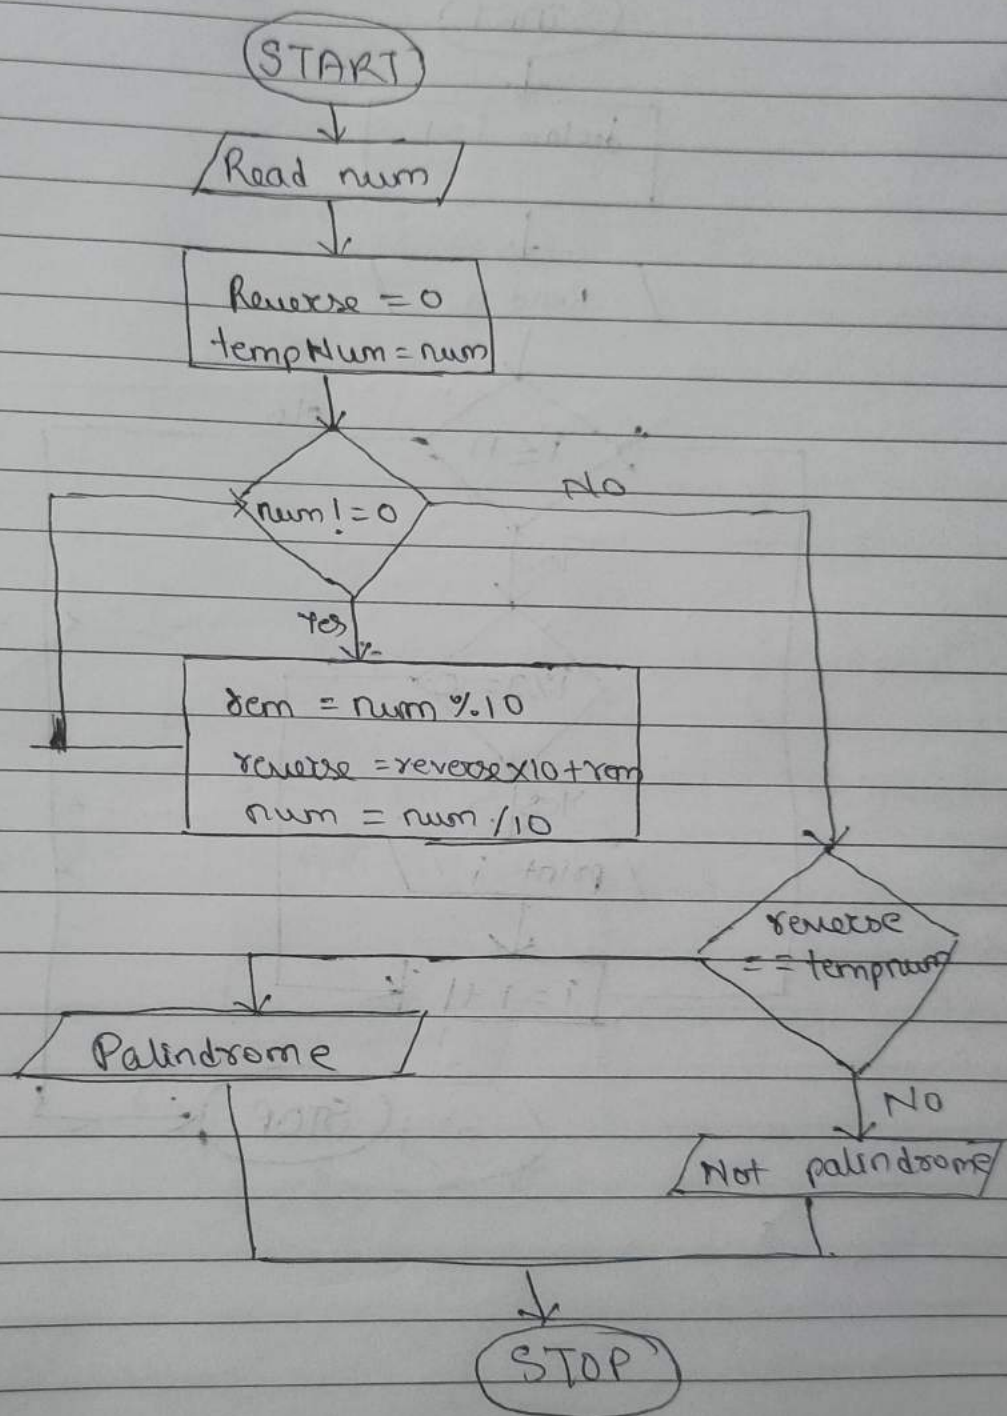 START
Read num
Reverse = 0
tempNum = num
num != 0
NO
Yes
rem = num % 10
reverse = reverse x 10 + rem
num = num / 10
reverse
== tempnum
Palindrome
NO
Not palindrome
STOP